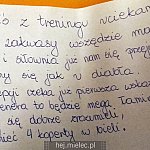 ś z treningu uciekam
zakwasy wszędzie ma
i słownia już nam się przej
my się jak u diabła.
trzeba już pierwsza wska
to będzie mega. Tamie
się dobrze zrozumieli,
mieć 4 koperty w bieli.
hej.mielec.pl